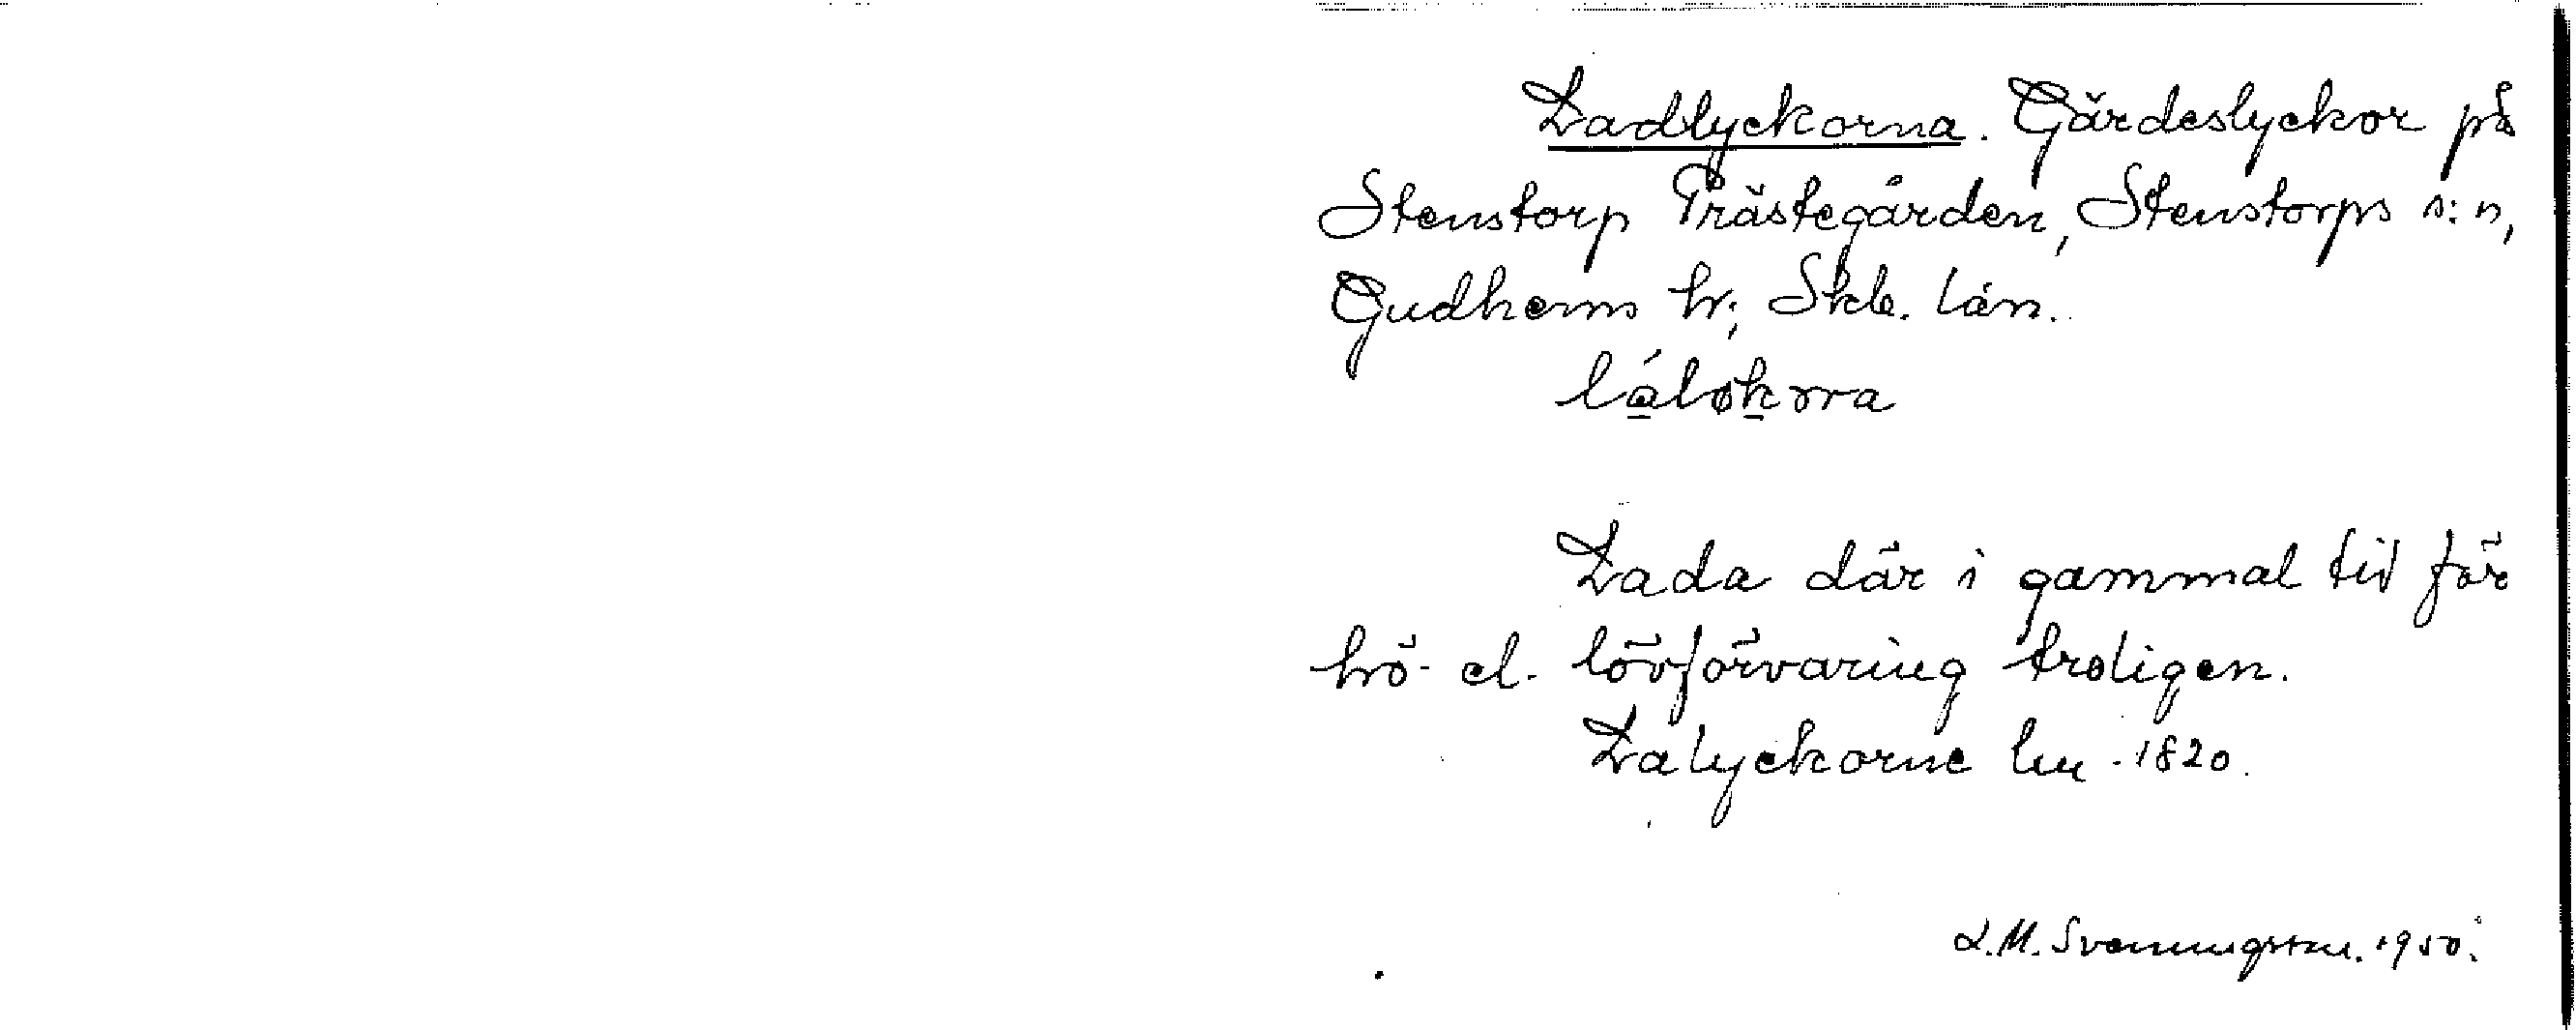 Ladlyckorna. Gärdeslyckor på
Stenstorp Prästegården, Stenstorps s:n,
Gudhems hr; Skb. län.
láløkɷra
Lada där i gammal tid för
hö- el. lövförvaring troligen.
Lalyckorne lm. 1820.
L.M. Svenungsson. 1950.